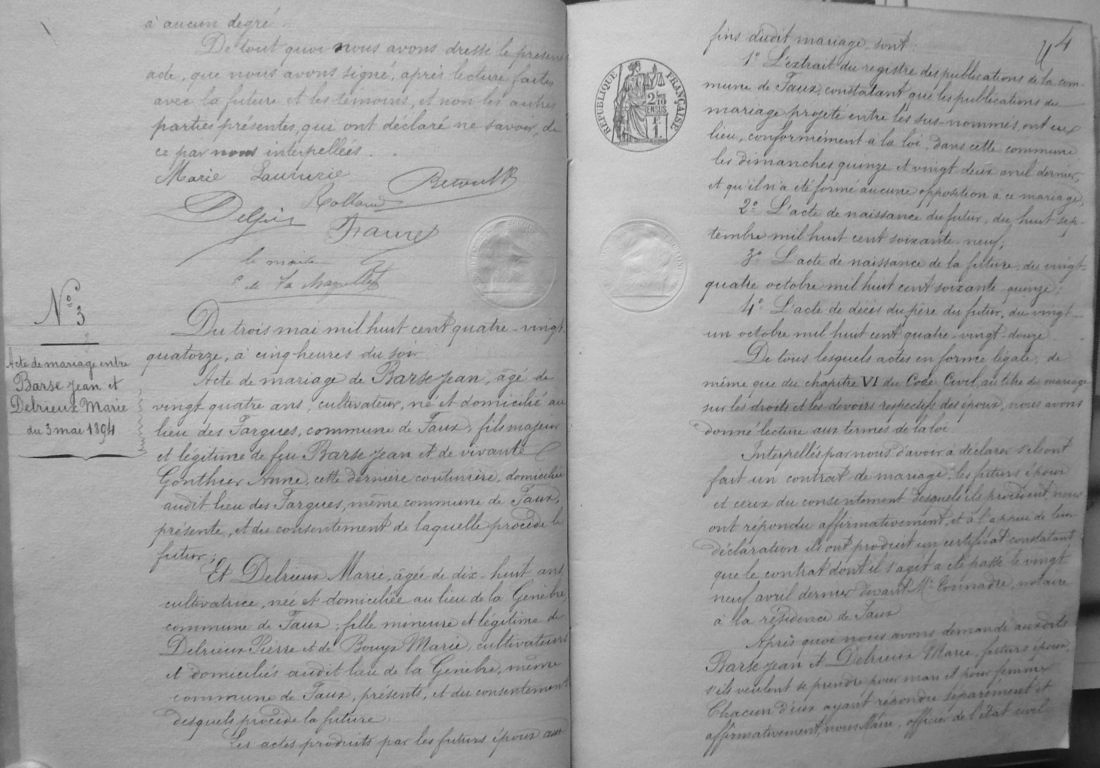 à aucun degré.
De tout quoi nous avons dressé le présent
acte, que nous avons signé, après lecture faite
avec la future et les témoins, et non les autres
parties présentes, qui ont déclaré ne savoir, de
ce par nous interpellées.
Marie
Rolland
Delpis
Faure
le maire
No 3
Acte de mariage entre
Barse Jean et
Delrieux Marie
du 3 mai 1894
Du trois mai mil huit cent quatre-vingt
quatorze, à cinq heures du soir.
Acte de mariage de Barse Jean, âgé de
vingt quatre ans, cultivateur, né et domicilié au
lieu des Fargues, commune de Faux, fils majeur
et légitime de feu Barse Jean et de vivante
Gonthier Anne, cette dernière couturière, domiciliée
audit lieu des Fargues, même commune de Faux,
présente, et du consentement de laquelle procède le
futur;
Et Delrieux Marie, âgée de dix-huit ans
cultivatrice, née et domiciliée au lieu de la Genèbre,
commune de Faux; fille mineure et légitime de
Delrieux Pierre et de Bouys Marie, cultivateurs
et domiciliés audit lieu de la Genèbre, même
commune de Faux, présents, et du consentement
desquels procède la future.
Les actes produits par les futurs époux aux
4
fins dudit mariage sont:
RÉPUBLIQUE FRANÇAISE
2/10 EN SUS
1F
1o L'extrait du registre des publications de la com-
mune de Faux, constatant que les publications du
mariage projeté entre les sus-nommés ont eu
lieu, conformément à la loi, dans cette commune
les dimanches quinze et vingt deux avril dernier
et qu'il n'a été formé aucune opposition à ce mariage;
2o L'acte de naissance du futur, du huit sep-
tembre mil huit cent soixante-neuf;
3o L'acte de naissance de la future, du vingt-
quatre octobre mil huit cent soixante-quinze;
4o L'acte de décès du père du futur, du vingt-
un octobre mil huit cent quatre-vingt-douze
De tous lesquels actes en forme légale, de
même que du chapitre VI du Code Civil, au titre du mariage
sur les droits et les devoirs respectifs des époux, nous avons
donné lecture aux termes de la loi.
Interpellés par nous d'avoir à déclarer s'ils ont
fait un contrat de mariage, les futurs époux
et ceux du consentement desquels ils procèdent, nous
ont répondu affirmativement, et à l'appui de leur
déclaration ils ont produit un certificat constatant
que le contrat dont il s'agit a été passé le vingt
neuf avril dernier devant Me notaire
à la résidence de Faux
Après quoi nous avons demandé auxdits
Barse Jean et Delrieux Marie, futurs époux,
s'ils veulent se prendre pour mari et pour femme
Chacun d'eux ayant répondu séparément et
affirmativement, nous Maire, officier de l'état civil